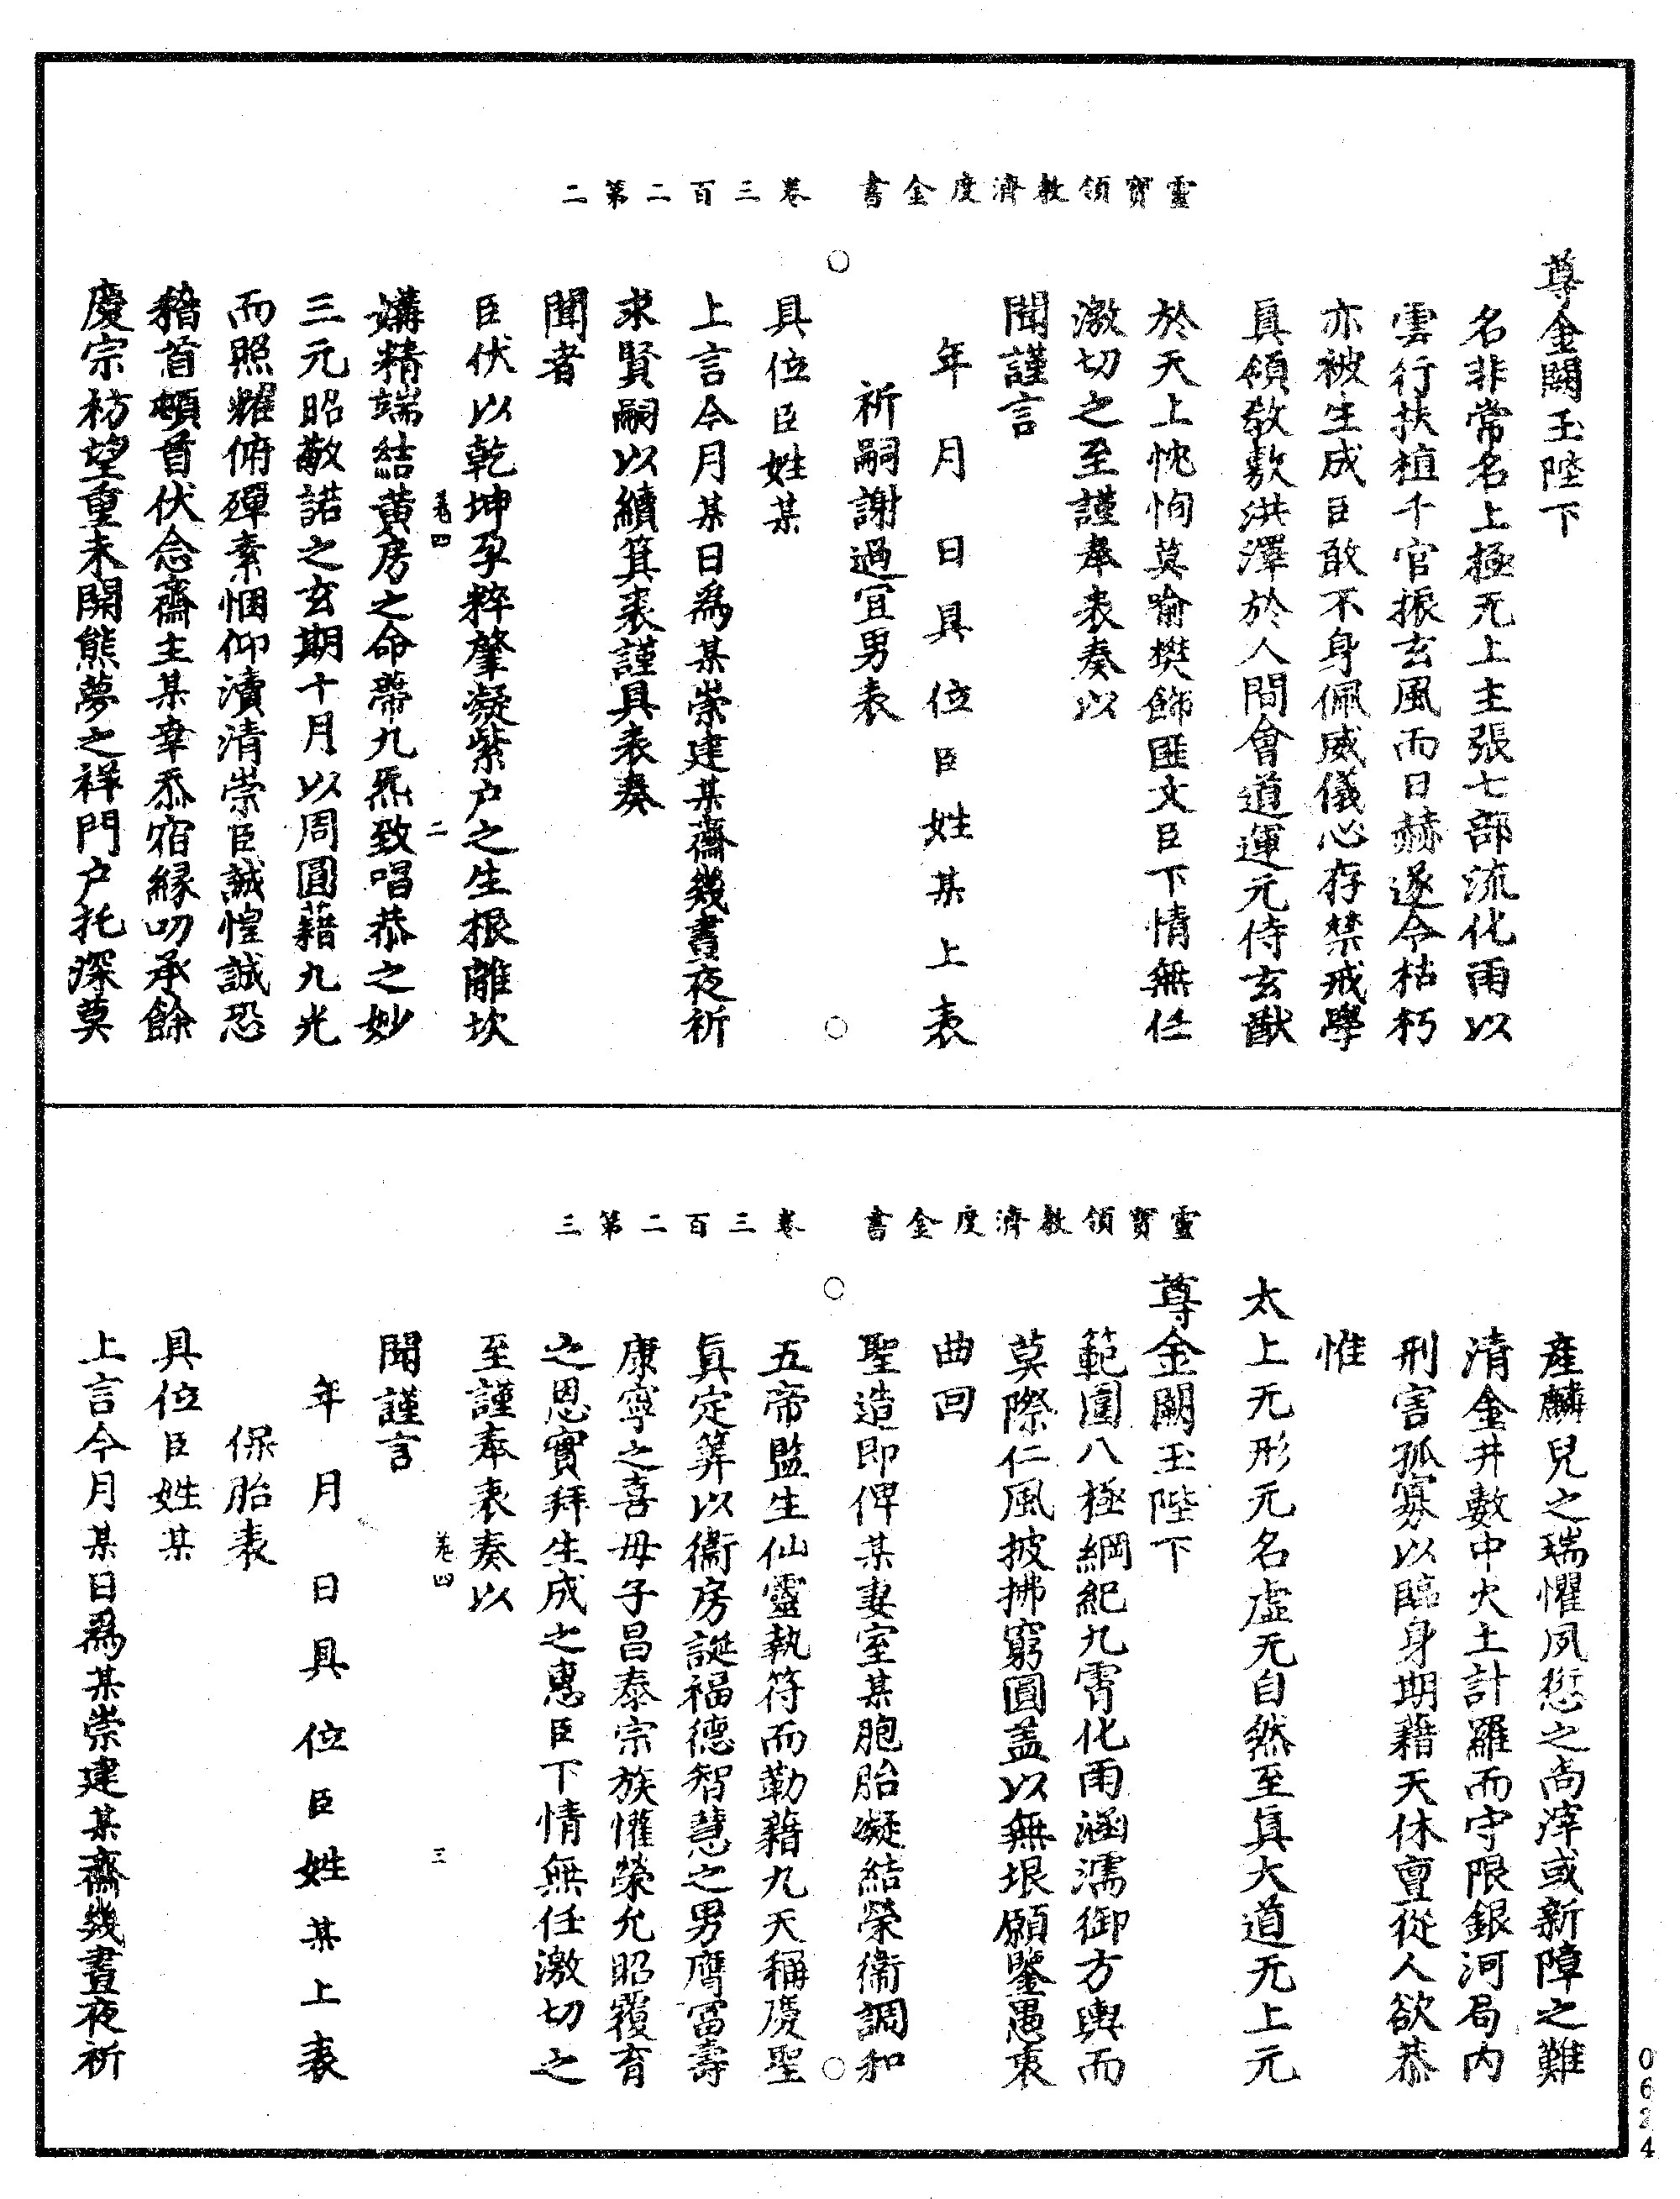 靈寶領教濟度金書　卷三百二第二
尊金闕玉陛下
名非常名上極无上主張七部流化雨以
雲行扶植千官振玄風而日赫遂令枯朽
亦被生成臣敢不身佩威儀心存禁戒學
真領教敷洪澤於人間會道運元侍玄猷
於天上忱恂莫喻樊飾匪文臣下情無任
激切之至謹奉表奏以
聞謹言
年　月　日具位臣姓某上表
祈嗣謝過宜男表
具位臣姓某
上言今月某日為某崇建某齋幾晝夜祈
求賢嗣以續箕裘謹具表奏
聞者
臣伏以乾坤孕粹肇凝紫户之生根離坎
卷四　二
媾精端結黄房之命蔕九炁致唱恭之妙
三元昭敬諾之玄期十月以周圓藉九光
而照耀俯殫素悃仰瀆清崇臣誠惶誠恐
稽首頓首伏念齋主某幸忝宿緣叨承餘
慶宗枋望重未開熊夢之祥門户托深莫
靈寶領教濟度金書　卷三百二第三
產麟兒之瑞懼夙愆之尚滓或新障之難
清金井數中火土計羅而守限銀河局内
刑害孤寡以臨身期藉天休亶從人欲恭
惟
太上无形元名虚无自然至真大道无上元
尊金闕玉陛下
範圍八極綱紀九霄化雨涵濡御方輿而
莫際仁風披拂窮圓盖以無垠願鑒愚衷
曲回
聖造即俾某妻室某胞胎凝結榮衛調和
五帝監生仙靈執符而勒藉九天稱慶聖
真定筭以衞房誕福德智慧之男膺富壽
康寧之喜母子昌泰宗族懽榮允昭覆育
之恩實拜生成之惠臣下情無任激切之
至謹奉表奏以
卷四　三
聞謹言
年　月　日具位臣姓某上表
保胎表
具位臣姓某
上言今月某日為某崇建某齋幾晝夜祈
0624